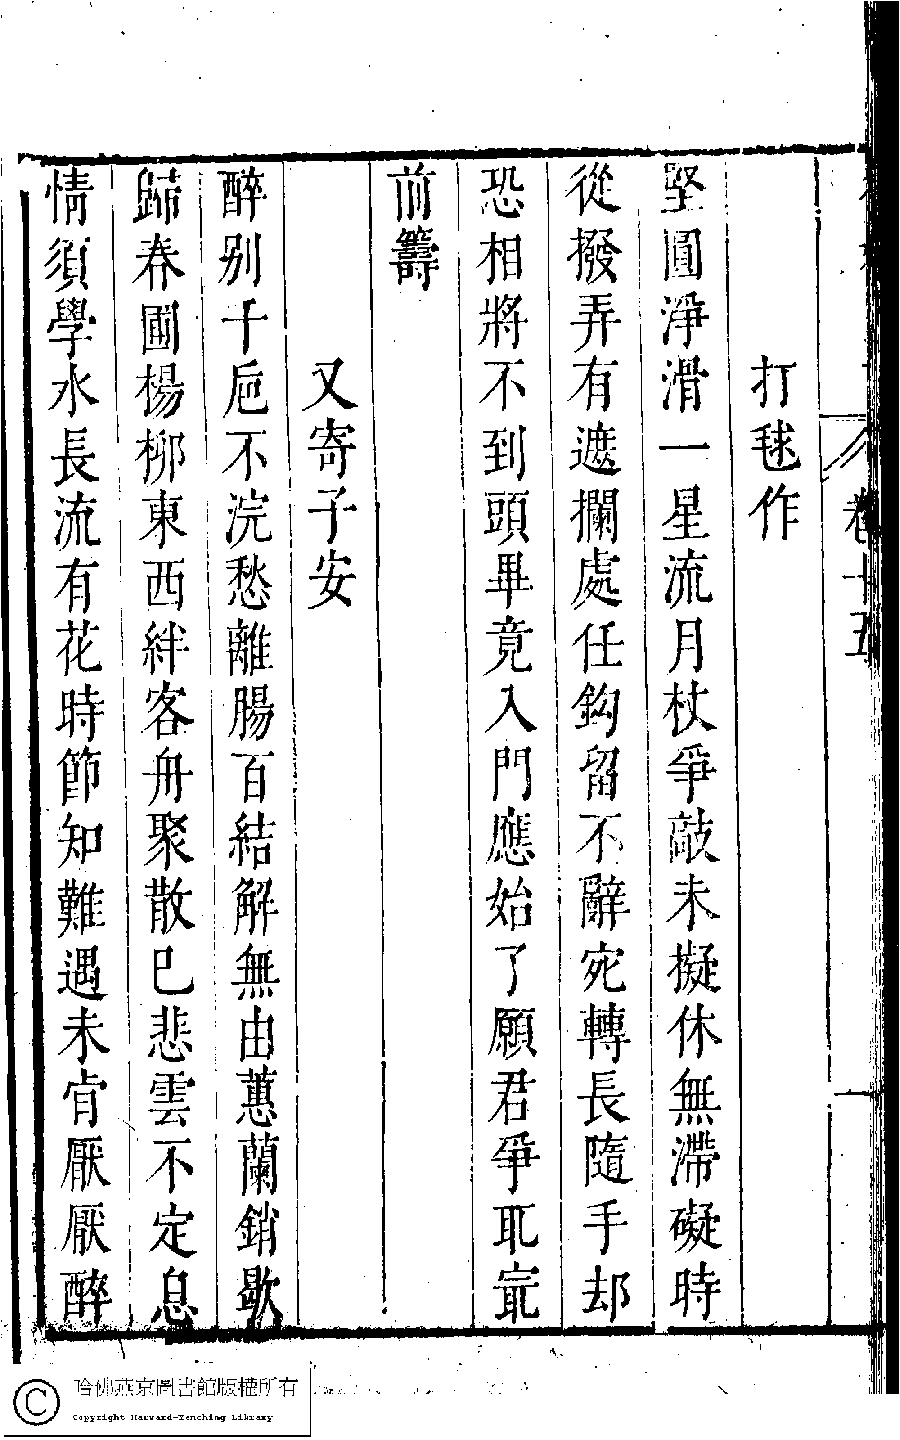 卷十五
打毬作
堅圓淨滑一星流月杖爭敲未擬休無滯礙時
從撥弄有遮攔處任鈎留不辭宛轉長隨手却
恐相將不到頭畢竟入門應始了願君爭取㝡
前籌
又寄子安
醉别千巵不浣愁離腸百結解無由蕙蘭銷歇
歸春圃楊柳東西絆客舟聚散已悲雲不定㤙
情須學水長流有花時節知難遇未肯厭厭醉
哈佛燕京圖書館版權所有
Copyright Harvard-Yenching Library